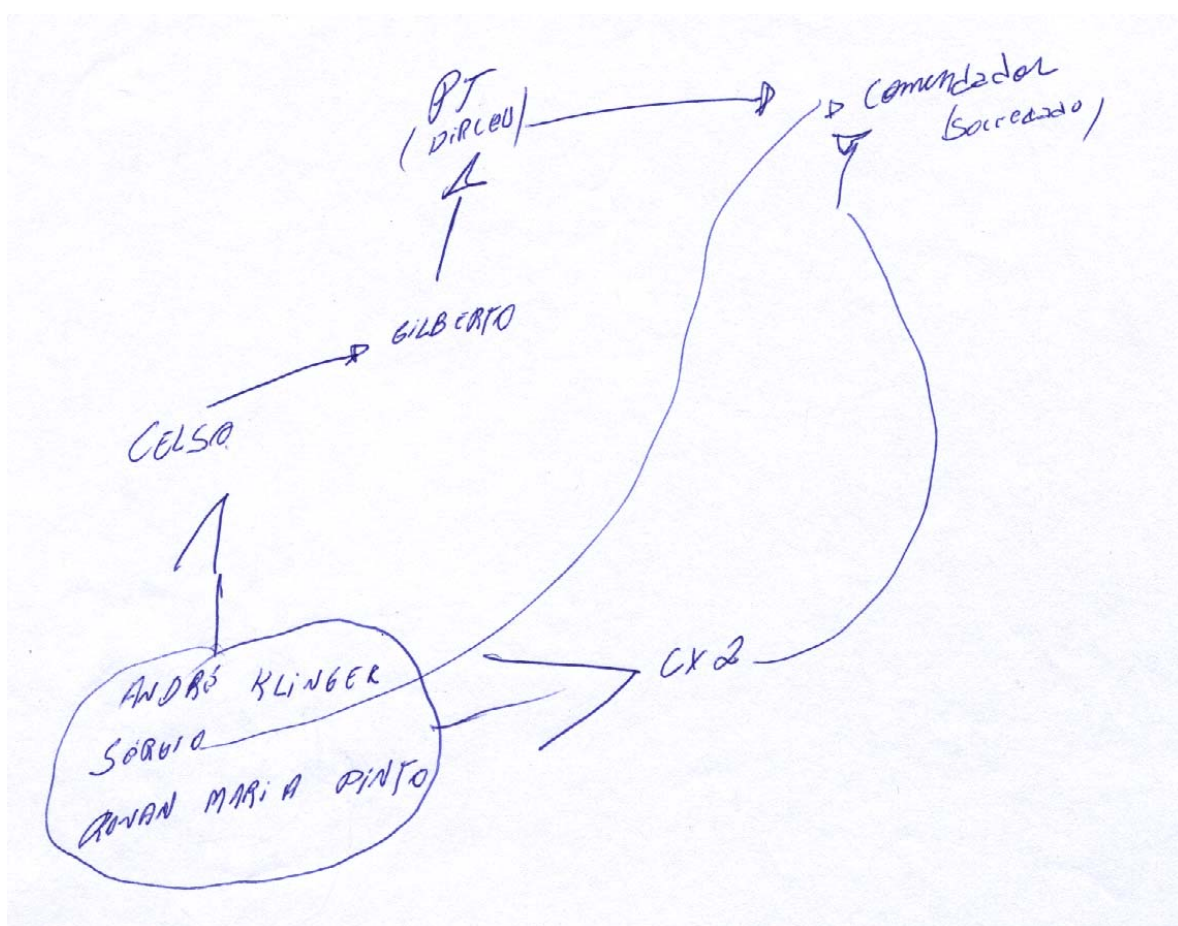 PT
(DIRCEU)
Comendador
(Sociedade)
GILBERTO
CELSO
CX2
ANDRÉ KLINGER
SÉRGIO
RONAN MARIA PINTO